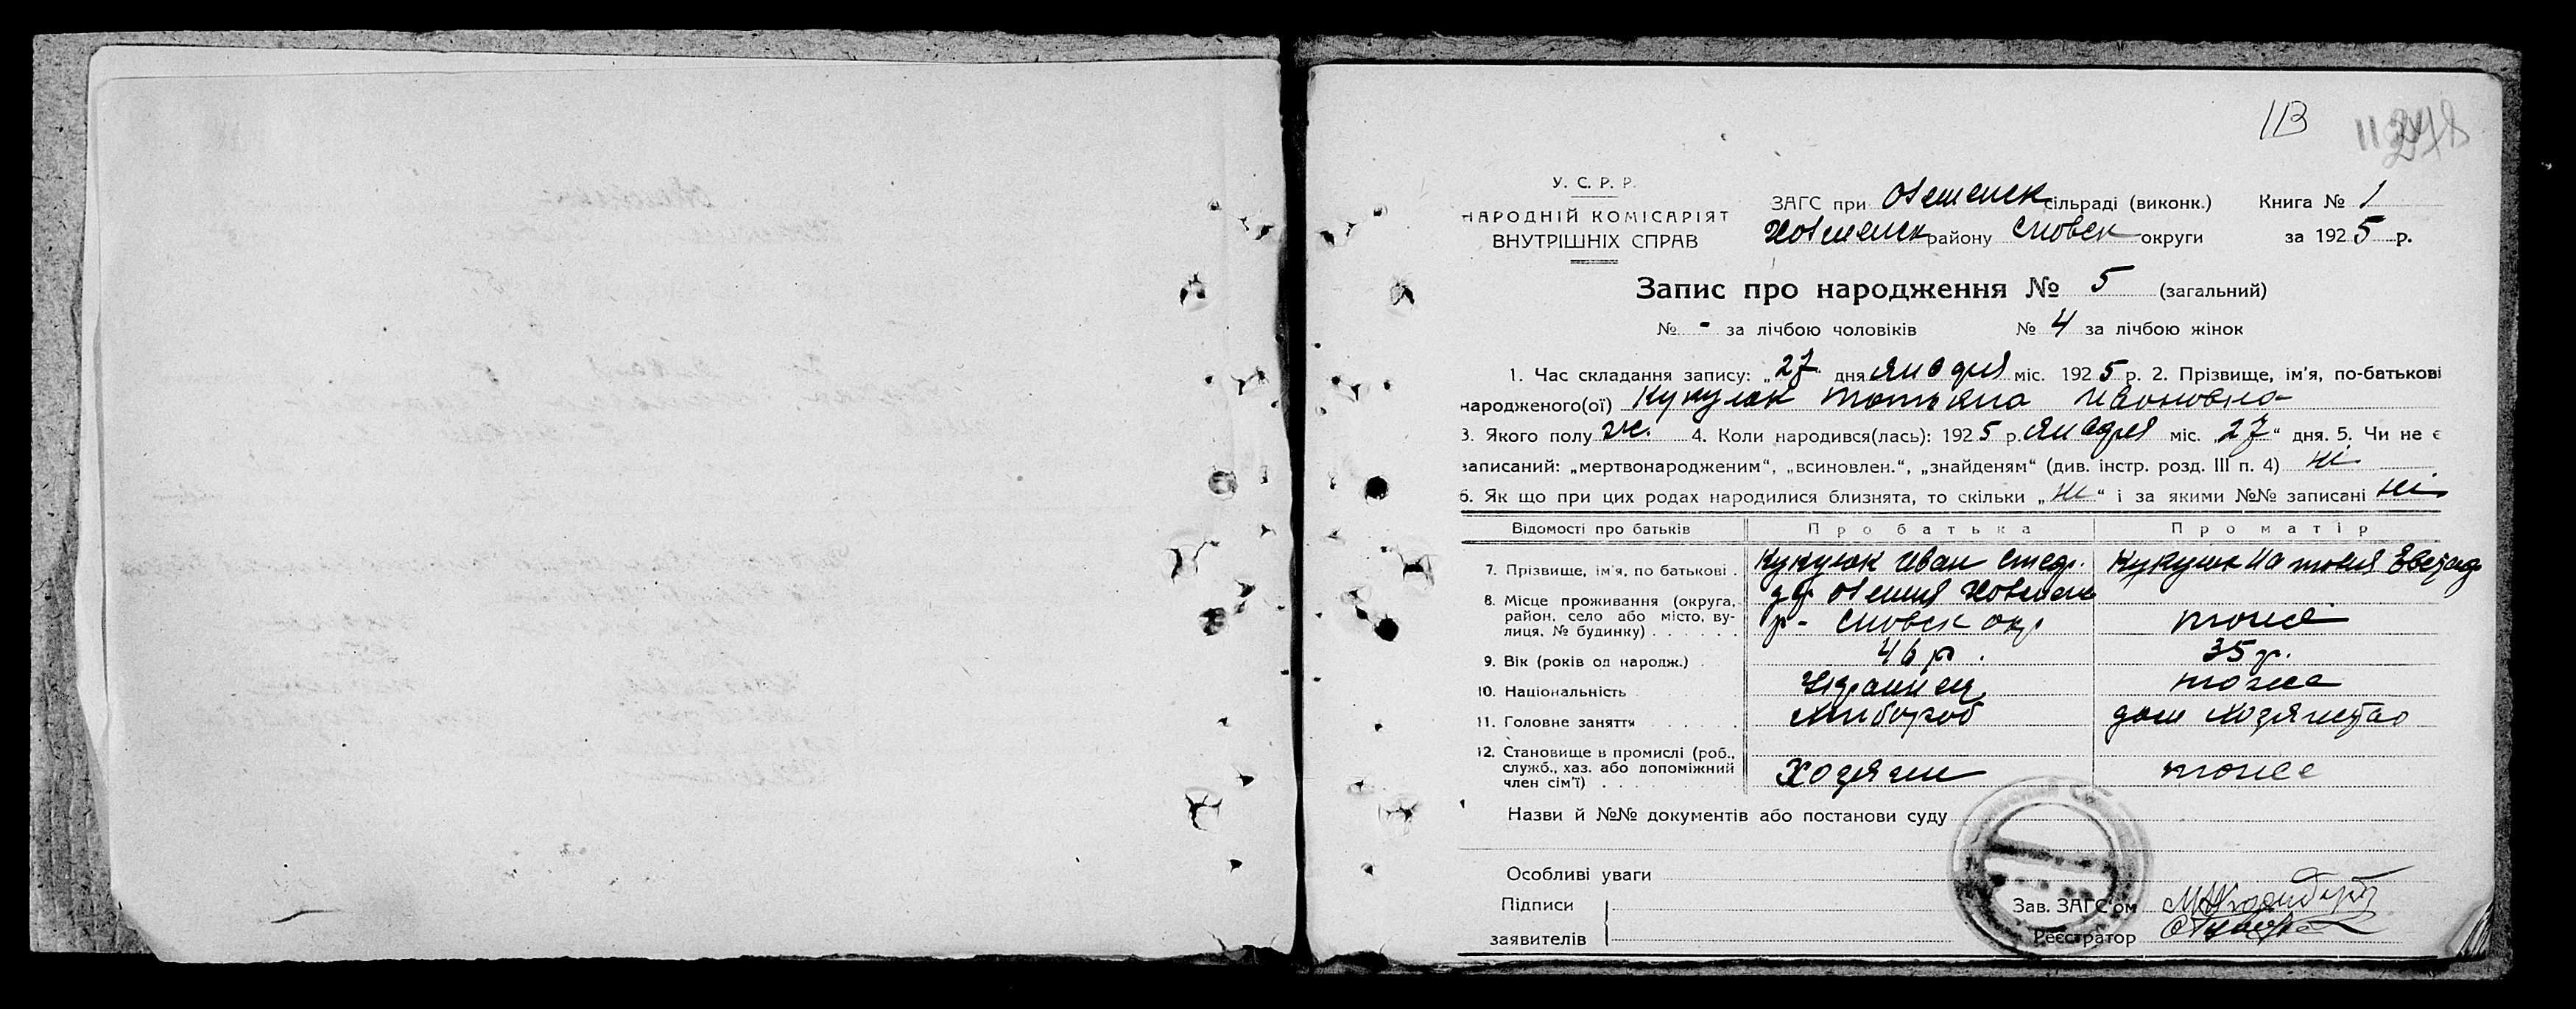 113
У. С. Р. Р.
НАРОДНІЙ КОМІСАРІЯТ
ВНУТРІШНІХ СПРАВ
ЗАГС при сільраді (виконк.) Книга № 1
району Сновск округи за 1925 р.
Запис про народження № 5 (загальний)
№ - за лічбою чоловіків № 4 за лічбою жінок
1. Час складання запису: „27" дня января міс. 1925 р. 2. Прізвище, ім'я, по-батькові
народженого(ої) Кукулок Татьяна Ивановна
3. Якого полу ж. 4. Коли народився(лась): 1925 р. января міс. „27" дня. 5. Чи не є
записаний: „мертвонародженим", „всиновлен.", „знайденям" (див. інстр. розд. III п. 4) ні
6. Як що при цих родах народилися близнята, то скільки „ні" і за якими №№ записані ні
Відомості про батьків Про батька Про матір
7. Прізвище, ім'я, по батькові . Иван
8. Місце проживання (округа, район, село або місто, вулиця, № будинку) . . . . . . р- Сновск окр. тоже
9. Вік (років од народж.) . 46 р. 35 р.
10. Національність Украинец тоже
11. Головне заняття . . . . . Хлибороб дом хозяйство
12. Становище в промислі (роб., служб., хаз. або допоміжний член сім'ї) . . . . . . . Хозяин тоже
Назви й №№ документів або постанови суду
Особливі уваги
Підписи
заявителів
Зав. ЗАГС'ом
Реєстратор